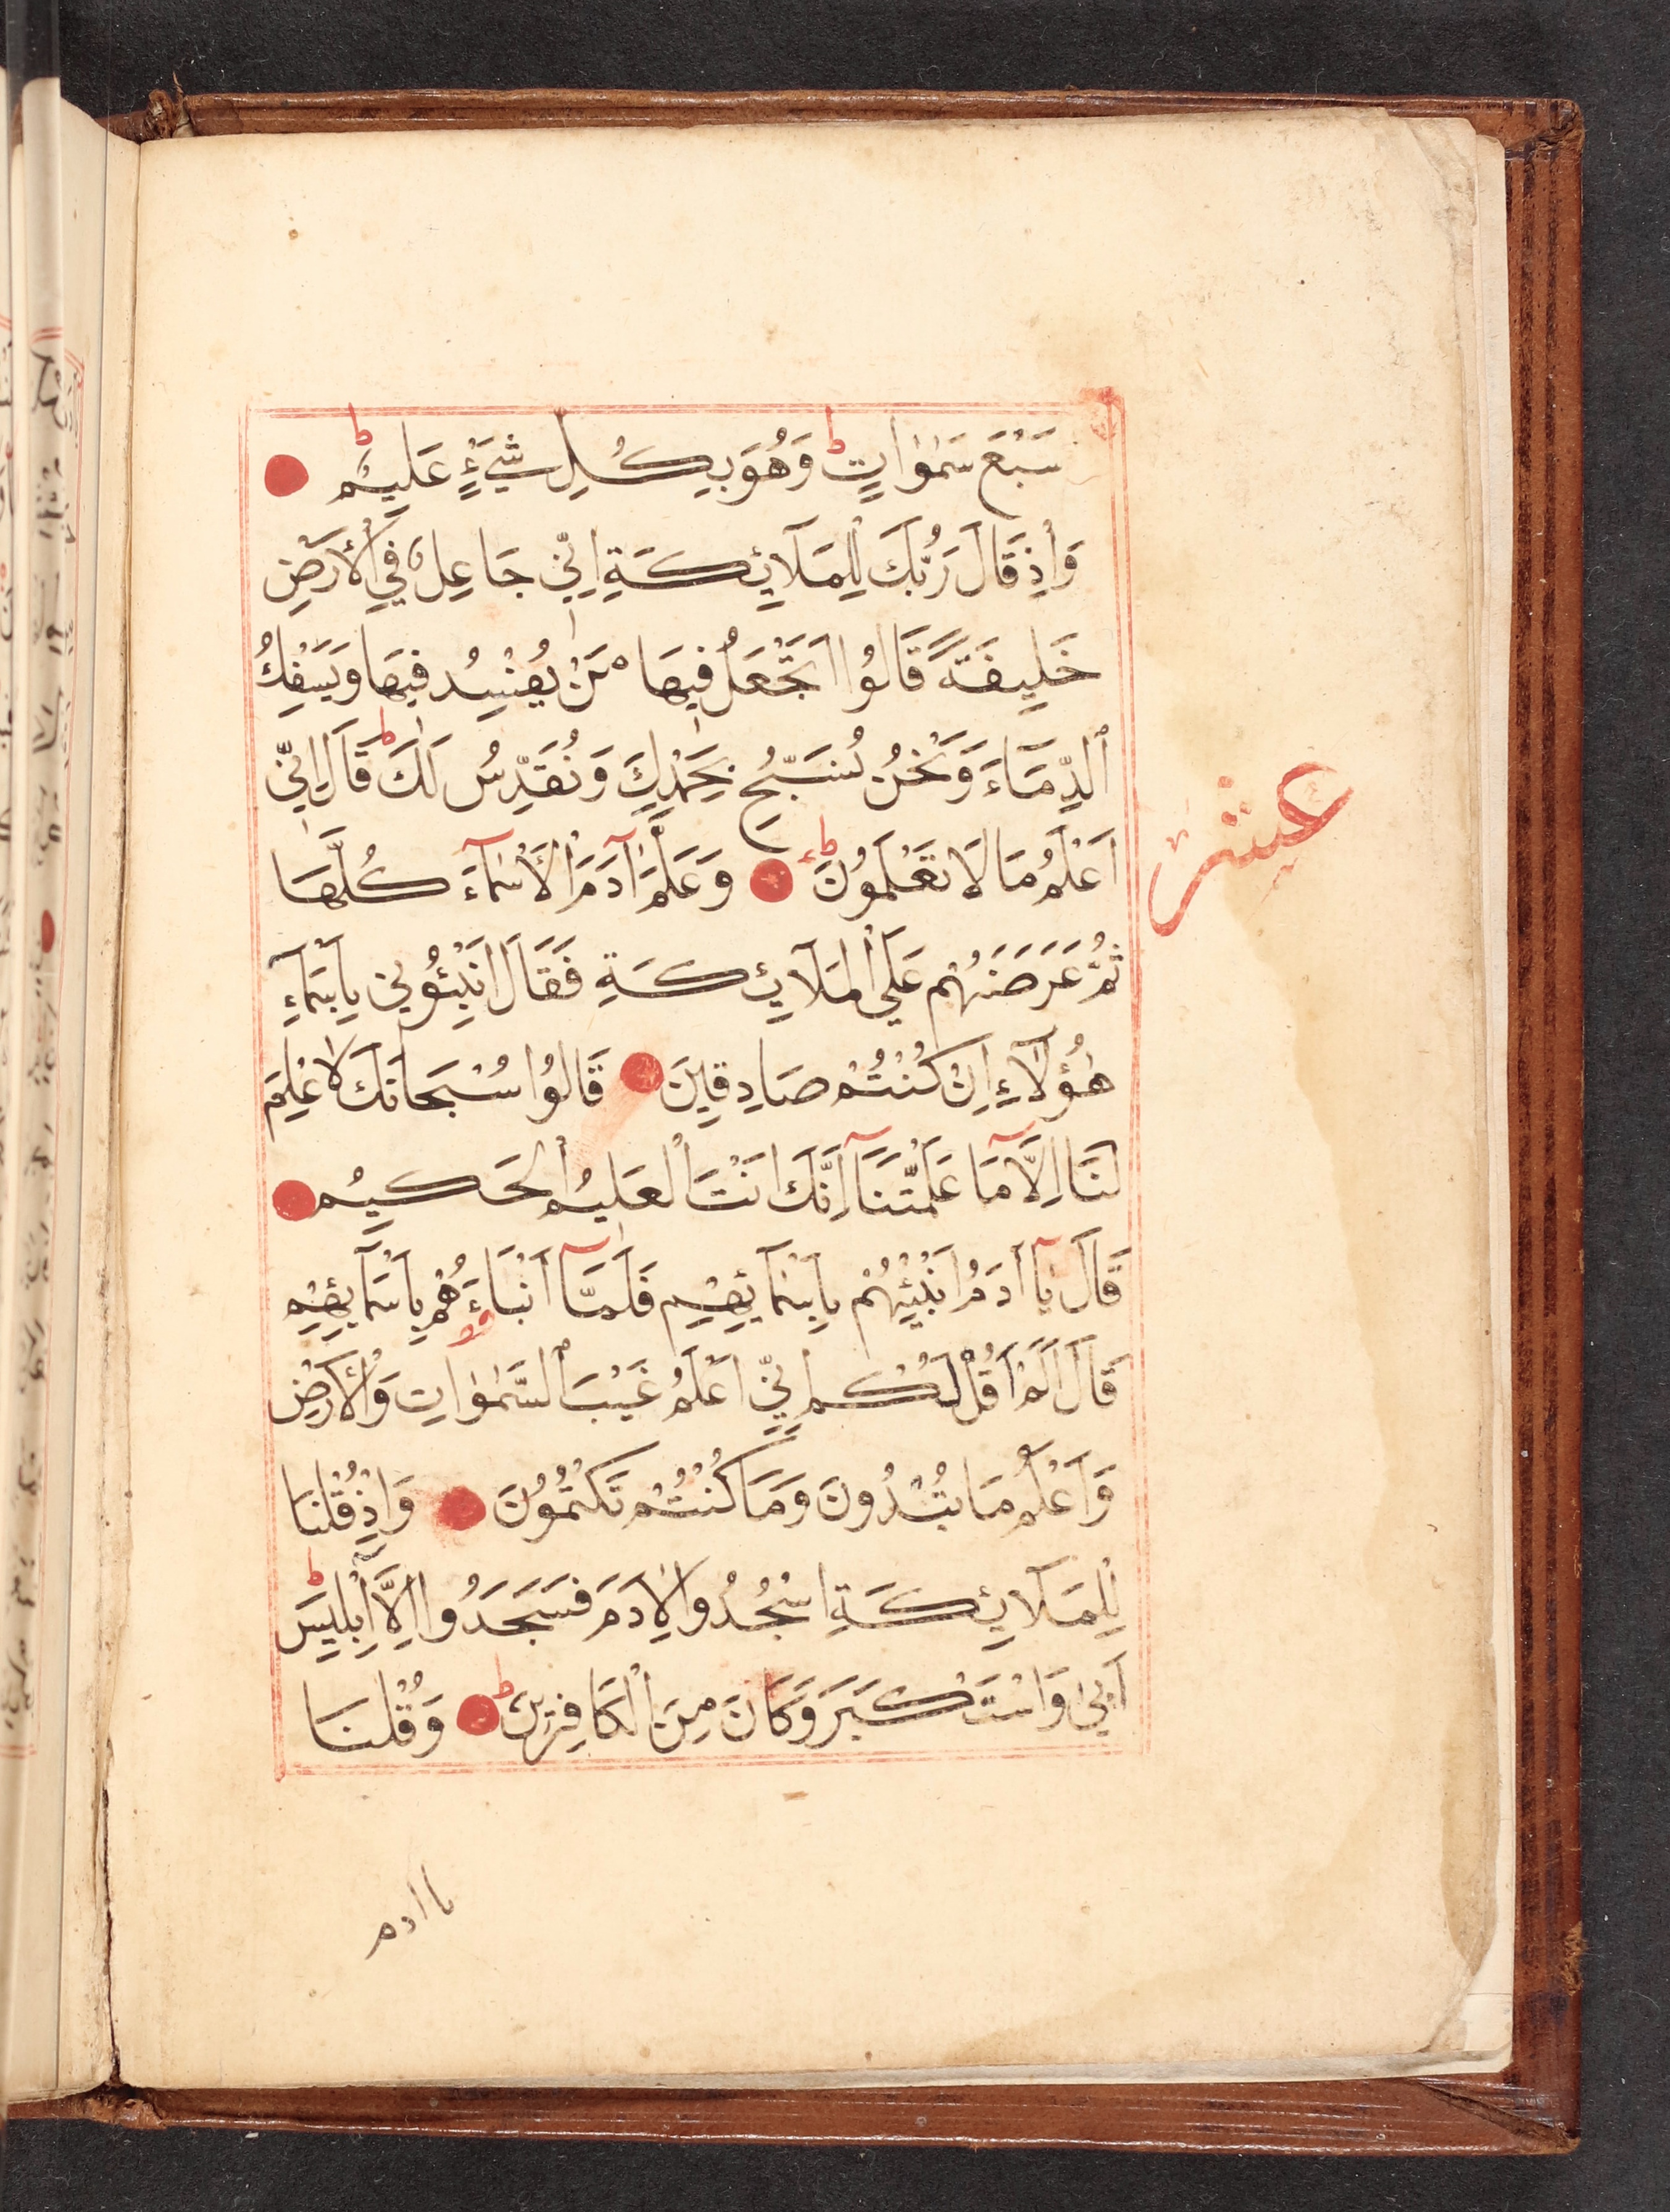 سَبْعَ سَمٰوٰاتٍ ط وَهُوَ بِكُلِ شَيْءٍ عَلِيمٌ ط
وَاِذْ قَالَ رَبُّكَ لِلْمَلَآئِكَةِ اِنّٖي جَاعِلٌ فِي الْأَرَضِ
خَلِيفَةً قَالُوا اَتَجْعَلُ فِيهَا مَنْ يُفْسِدُ فِيهَا وَيَسْفِكُ
الدِّمَآءَ وَنَحْنُ نُسَبِّحُ بِحَمْدِكَ وَنُقَدِّسُ لَكَ ط قَالَ اِنّٖي
اَعْلَمُ مَا لَا تَعْلَمُونَ ط وَعَلَّمَ آدَمَ الْأَسْمَآءَ كُلَّهَا
ثُمَّ عَرَضَهُمْ عَلَي الْمَلَآئِكَةِ فَقَالَ اَنْبِئُوني بِاَسْمَآءِ
هٰؤُلَآءِ اِنْ كُنْتُمْ صَادِقِينَ قَالُوا سُبْحَانَكَ لَا عِلْمَ
لَنَا اِلَّا مَا عَلَّمْتَنَآ اِنَّكَ اَنْتَ الْعَلِيمُ الْحَكِيمُ
قَالَ يَآ اٰدَمُ اَنْبِئْهُمْ بِاَسْمَآئِهِمْ فَلَمَّآ اَنْبَاءَهُمْ بِاَسْمَآئِهِمْ
قَالَ اَلَمْ اَقُلْ لَكُم اِنّٖي اَعْلَمُ غَيْبَ السَّمٰوٰاتِ وَالْأَرَضِ
وَاَعْلَمُ مَا تُبْدُونَ وَمَا كُنْتُمْ تَكْتُمُونَ وَاِذْ قُلْنَا
لِلْمَلَآئِكَةِ اسْجُدُوا لِاٰدَمَ فَسَجَدُوا اِلَّآ اِبْلِيسَ ط
اَبيٰ وَاسْتَكْبَرَ وَكَانَ مِنَ الْكَافِرِينَ ط وَقُلْنَا
عشر
يا ادم